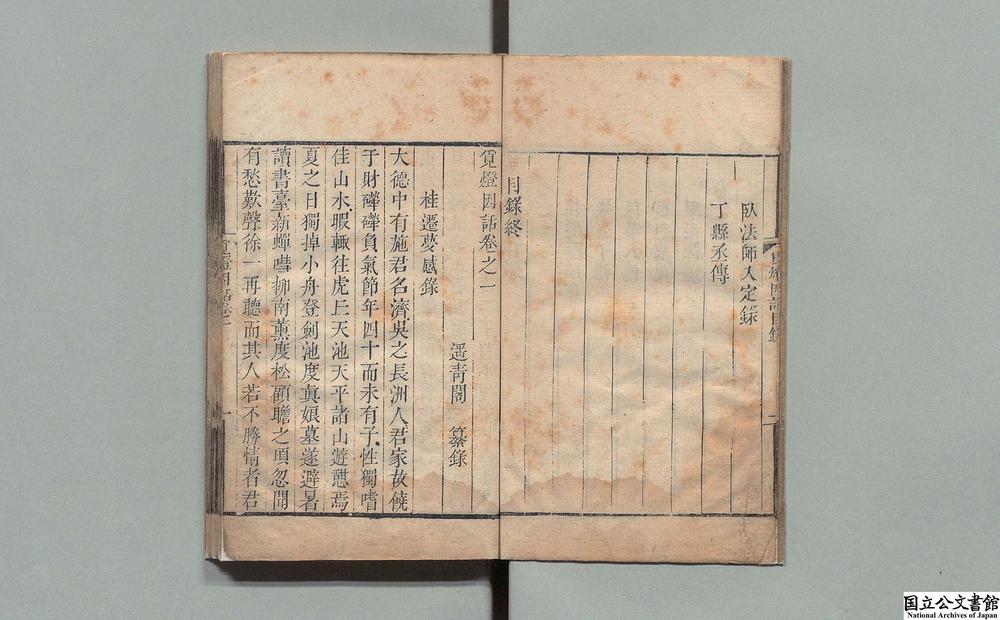 臥法師入定錄
丁縣丞傳
目錄終
覓燈因話卷之一
遥青閣 纂錄
桂遷夢感錄
大德中有施君名濟吳之長洲人君家故饒
于財磷磷負氣節年四十而未有子性獨嗜
佳山水暇輒往虎上天池天平諸山遊憇焉
夏之日獨掉小舟登劍池度真娘墓遂避暑
讀書臺新蟬嘒柳南薰度松顧瞻之頃忽聞
有愁歎聲徐一再聽而其人若不勝情者君
国立公文書館
National Archives of Japan